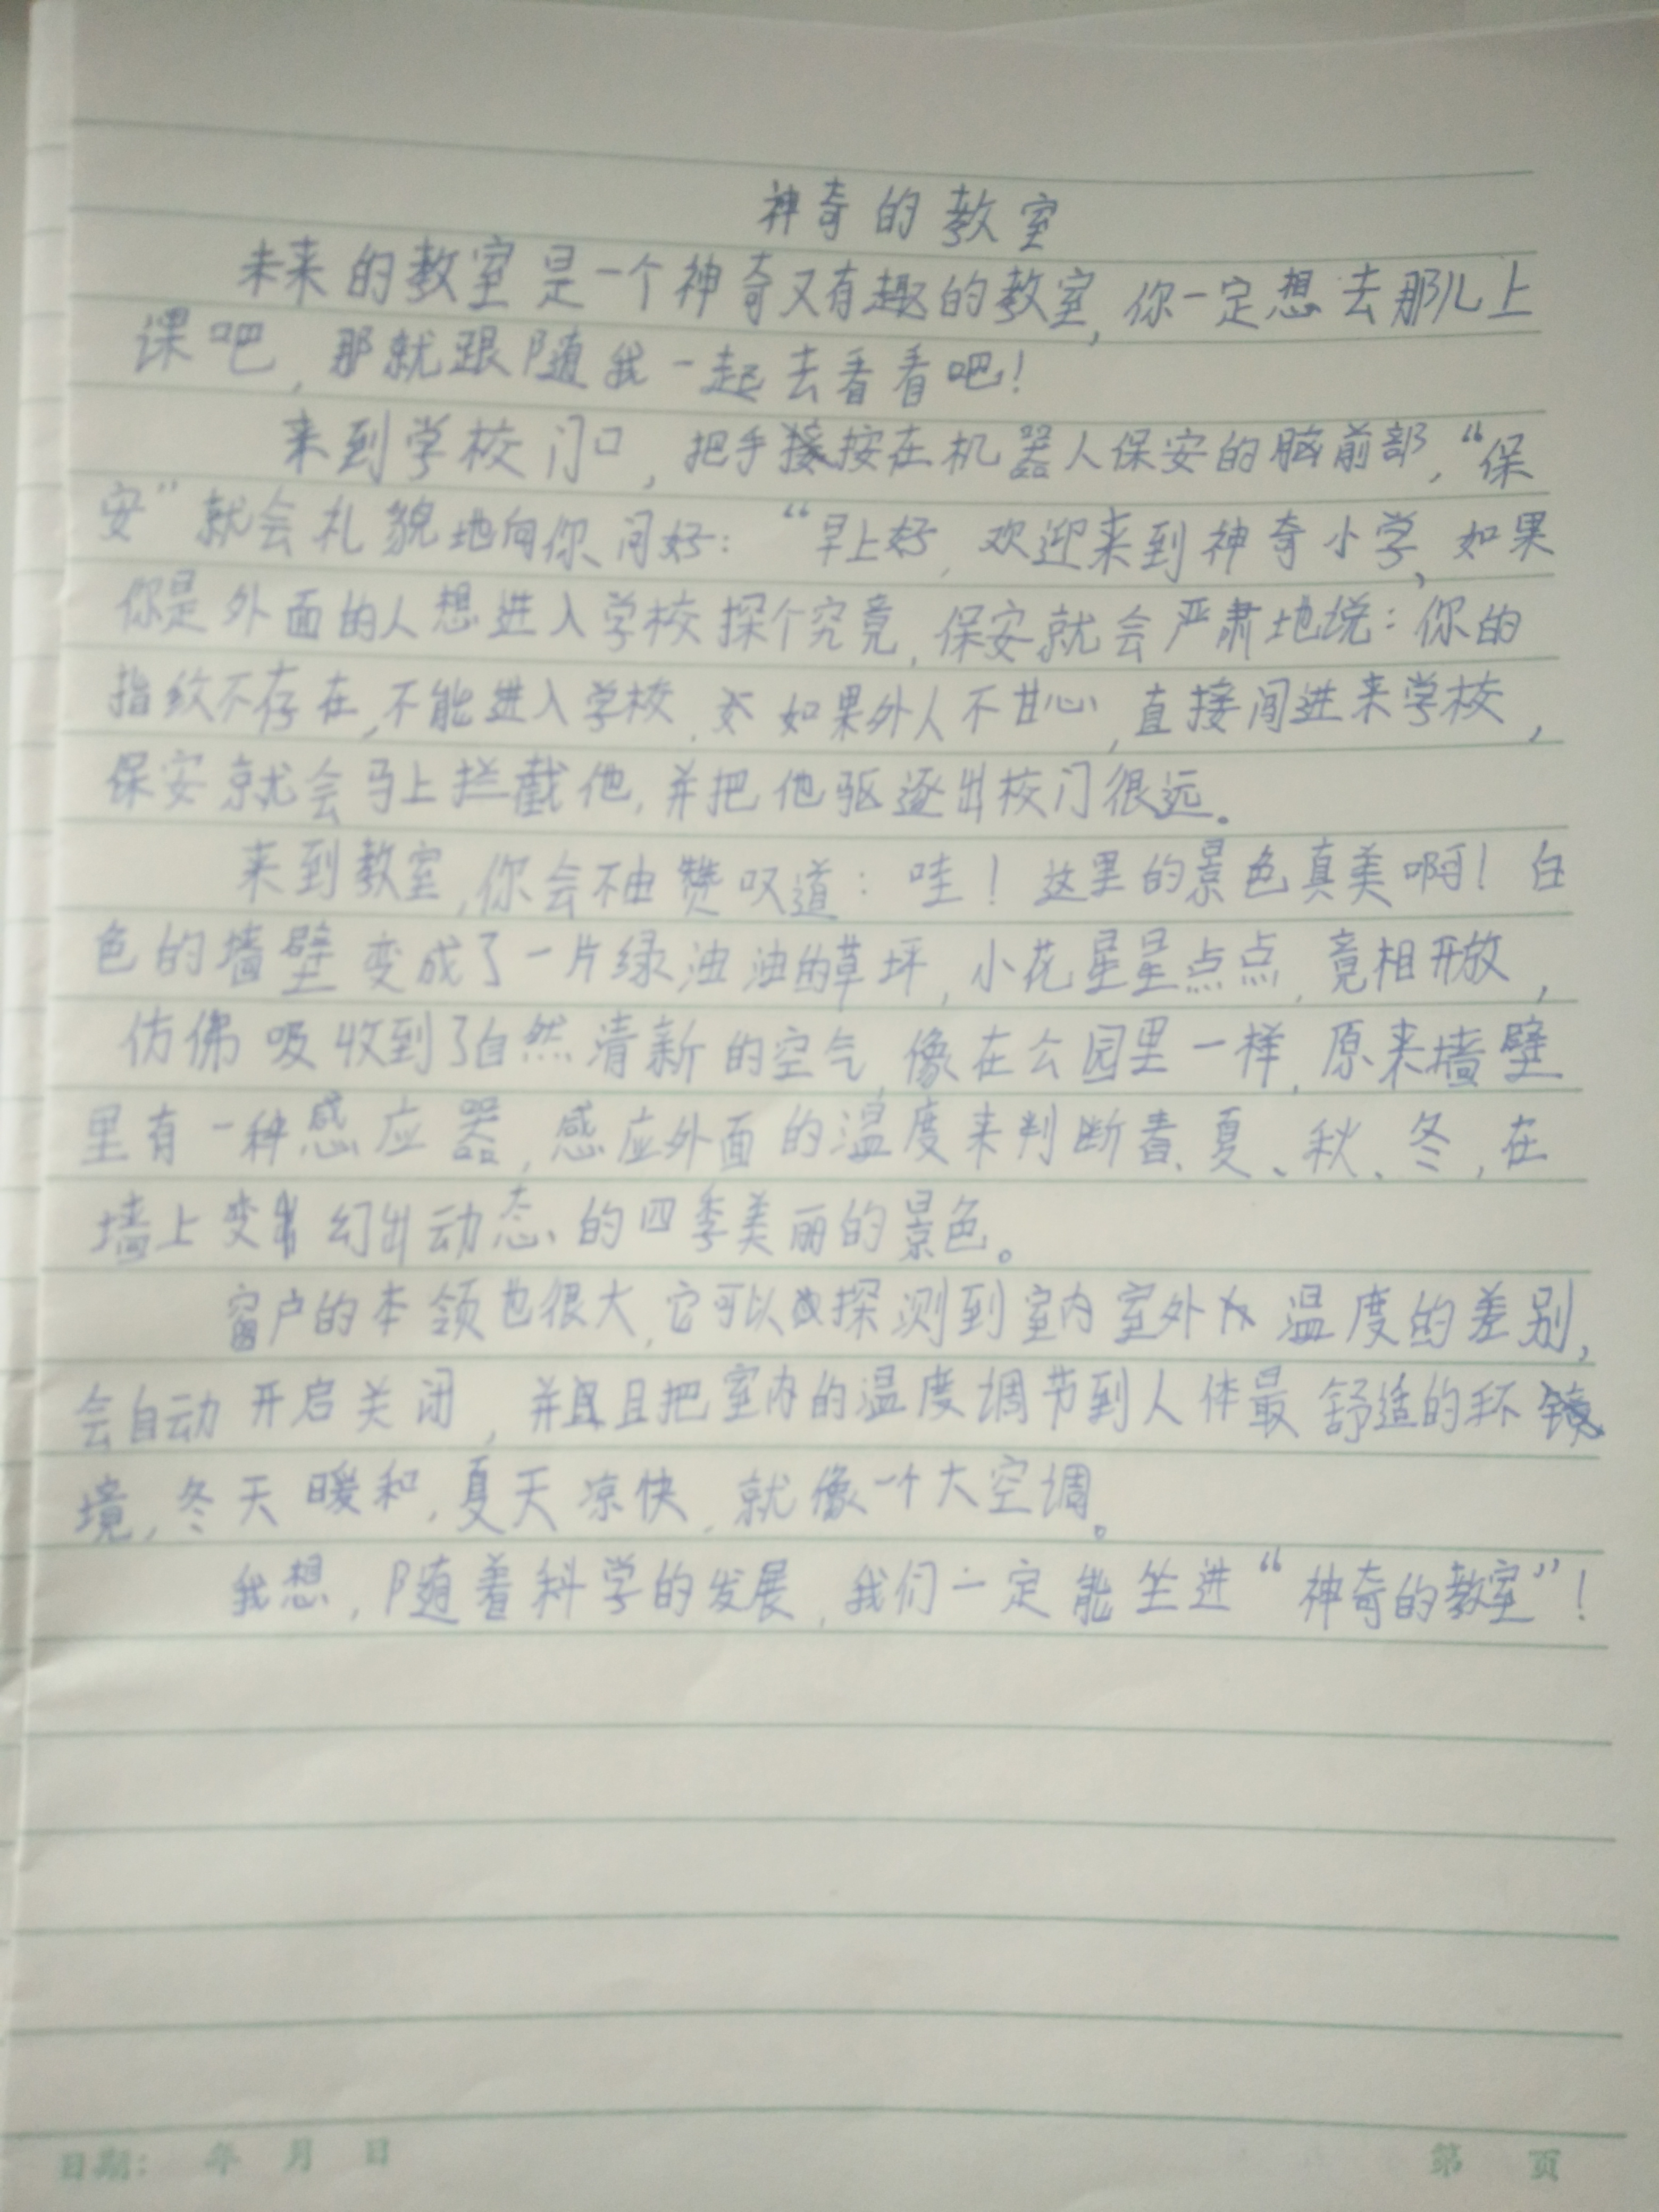 神奇的教室
未来的教室是一个神奇又有趣的教室,你一定想去那儿上
课吧,那就跟随我一起去看看吧!
来到学校门口,把手按在机器人保安的脑前部,“保
安”就会礼貌地向你问好:“早上好,欢迎来到神奇小学,如果
你是外面的人想进入学校探个究竟,保安就会严肃地说:你的
指纹不存在,不能进入学校,如果外人不甘心,直接闯进来学校,
保安就会马上拦截他,并把他驱逐出校门很远。
来到教室,你会不由赞叹道:哇!这里的景色真美啊!白
色的墙壁变成了一片绿油油的草坪,小花星星点点,竟相开放,
仿佛吸收到了自然清新的空气,像在公园里一样,原来墙壁
里有一种感应器,感应外面的温度来判断春、夏、秋、冬,在
墙上变幻出动态的四季美丽的景色。
窗户的本领也很大,它可以探测到室内室外温度的差别,
会自动开启关闭,并且把室内的温度调节到人体最舒适的环
境,冬天暖和,夏天凉快,就像一个大空调。
我想,随着科学的发展,我们一定能坐进“神奇的教室”!
日期: 年 月 日 第 页